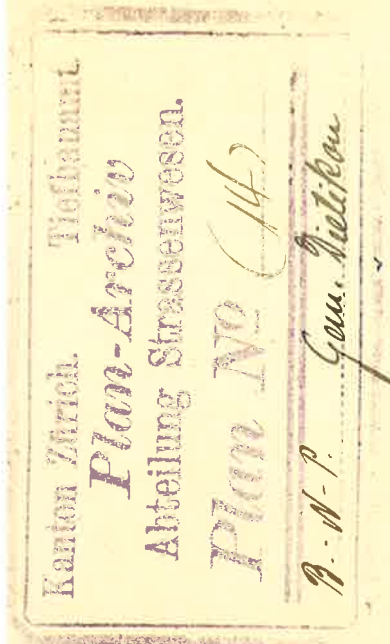 Kanton Zürich. Tiefbauamt.
Plan-Archiv
Abteilung Strassenwesen.
Plan No (14)
B.-N-P. Gem. Dietikon